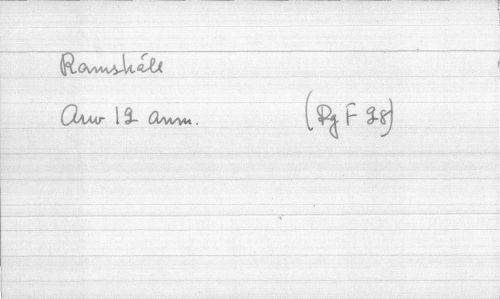 Ramskåll
Arw 12 anm. (Rg F 28)